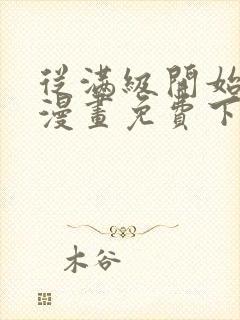 從滿級開始
漫畫免費下
木谷